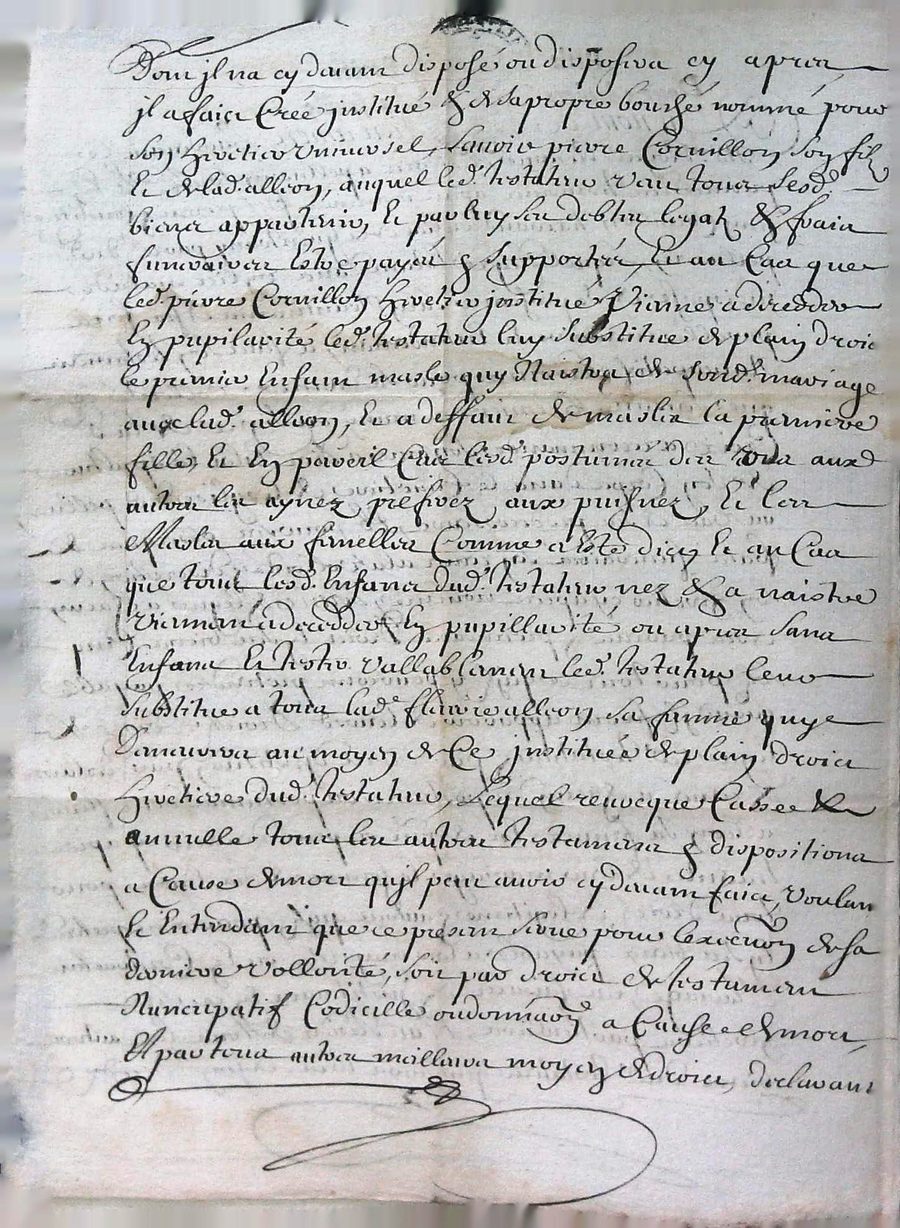 Dont jl na cy davant disposé ou disposera cy apres
jl a faict Créé jnstitué & de sa propre bouche nommé pour
son heretier universel, Savoir pierre Cornillon son filz
Et de lad. alleon, auquel led. testateur veut tous sesd.
biens appartenir, Et par luy ses debtes legatz & fraix
funeraires Estre payés & supportés, Et au Cas que
led. pierre Cornillon heretier jnstitué Vienne a decedder
En pupilarité led. testateur luy substitue de plain droict
le premier Enfant masle quy Naistra de sond. mariage
avec lad. alleon, Et a deffaut de masles la premiere
fille, Et En pareil Cas lesd. postumes des uns aux
autres les aynez preferez aux puisnez, Et les
Masles aux femelles Comme a Esté dict, Et au Cas
que tous lesd. Enfants dud. testateur nez & a naistre
Viennent a decedder En pupillarité ou apres sans
Enfans Et tester vallablement led. testateur leur
substitue a tous lad. flavie alleon sa femme quy
Demeurera au moyen de Ce jnstituée de plain droict
heretiere dud. testateur, Lequel revocque Casse &
annulle tous les autres testaments & dispositions
a Cause de mort qu'jl peut avoir cy davant faict, Voulant
Et Entendant que ce present serve pour l'execuon de sa
derniere vollonté, soit par droict de testament
Nuncupatif Codicille ou donnaon a Cause de mort,
Et par tous autres meilleurs moyen de droict, declarant